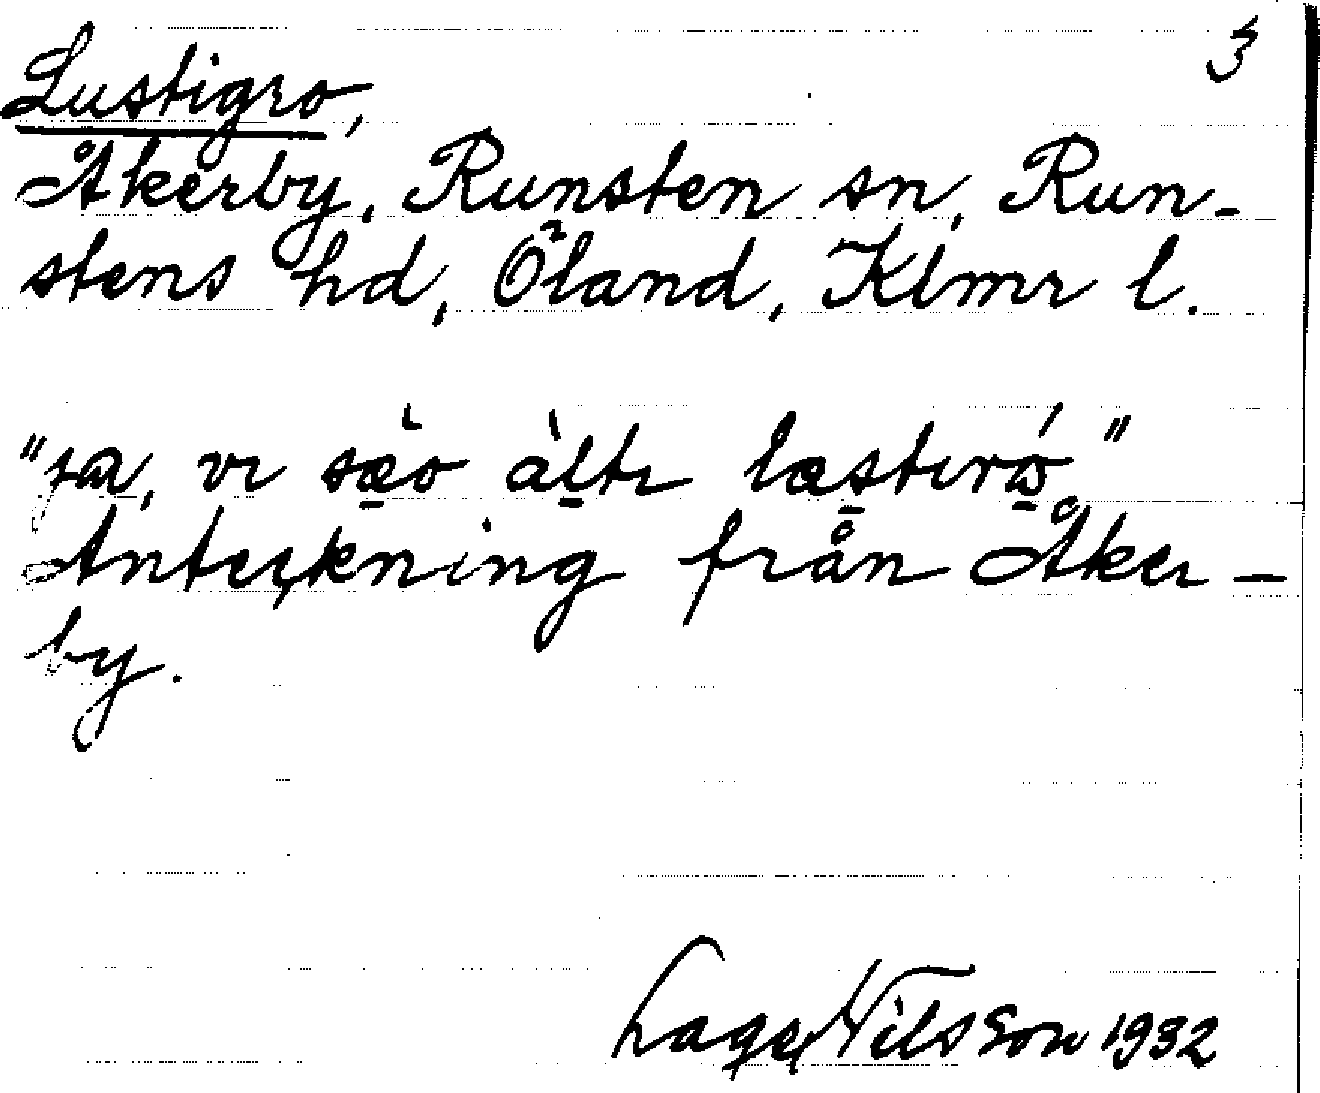 3
Lustigro,
Åkerby, Runsten sn, Run-
stens hd, Öland, Klmr l.
"ja, vi sæ̀o àltı læstırǿ"
Anteckning från Åker-
by.
Lage Nilsson 1932